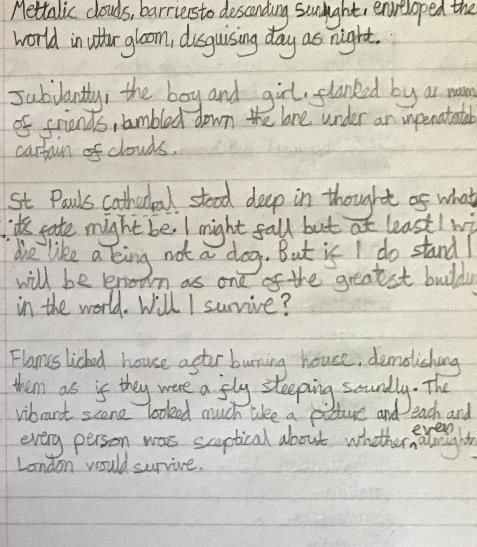 Mettalic clouds, barriers to descending sunlight, enveloped the
world in utter gloom, disguising day as night.
Jubilantly, the boy and girl, flanked by a
of friends, bumbled down the lane under an
cartain of clouds.
St Pauls Cathedral stood deep in thought of what
its fate might be. I might fall but at least I wi
die like a king not a dog. But if I do stand I
will be known as one of the greatest buildin
in the world. Will I survive?
Flames licked house after burning house, demolishing
them as if they were a fly sleeping soundly. The
vibrant scene looked much like a picture and each and
every person was sceptical about whether even almight
London would survive.